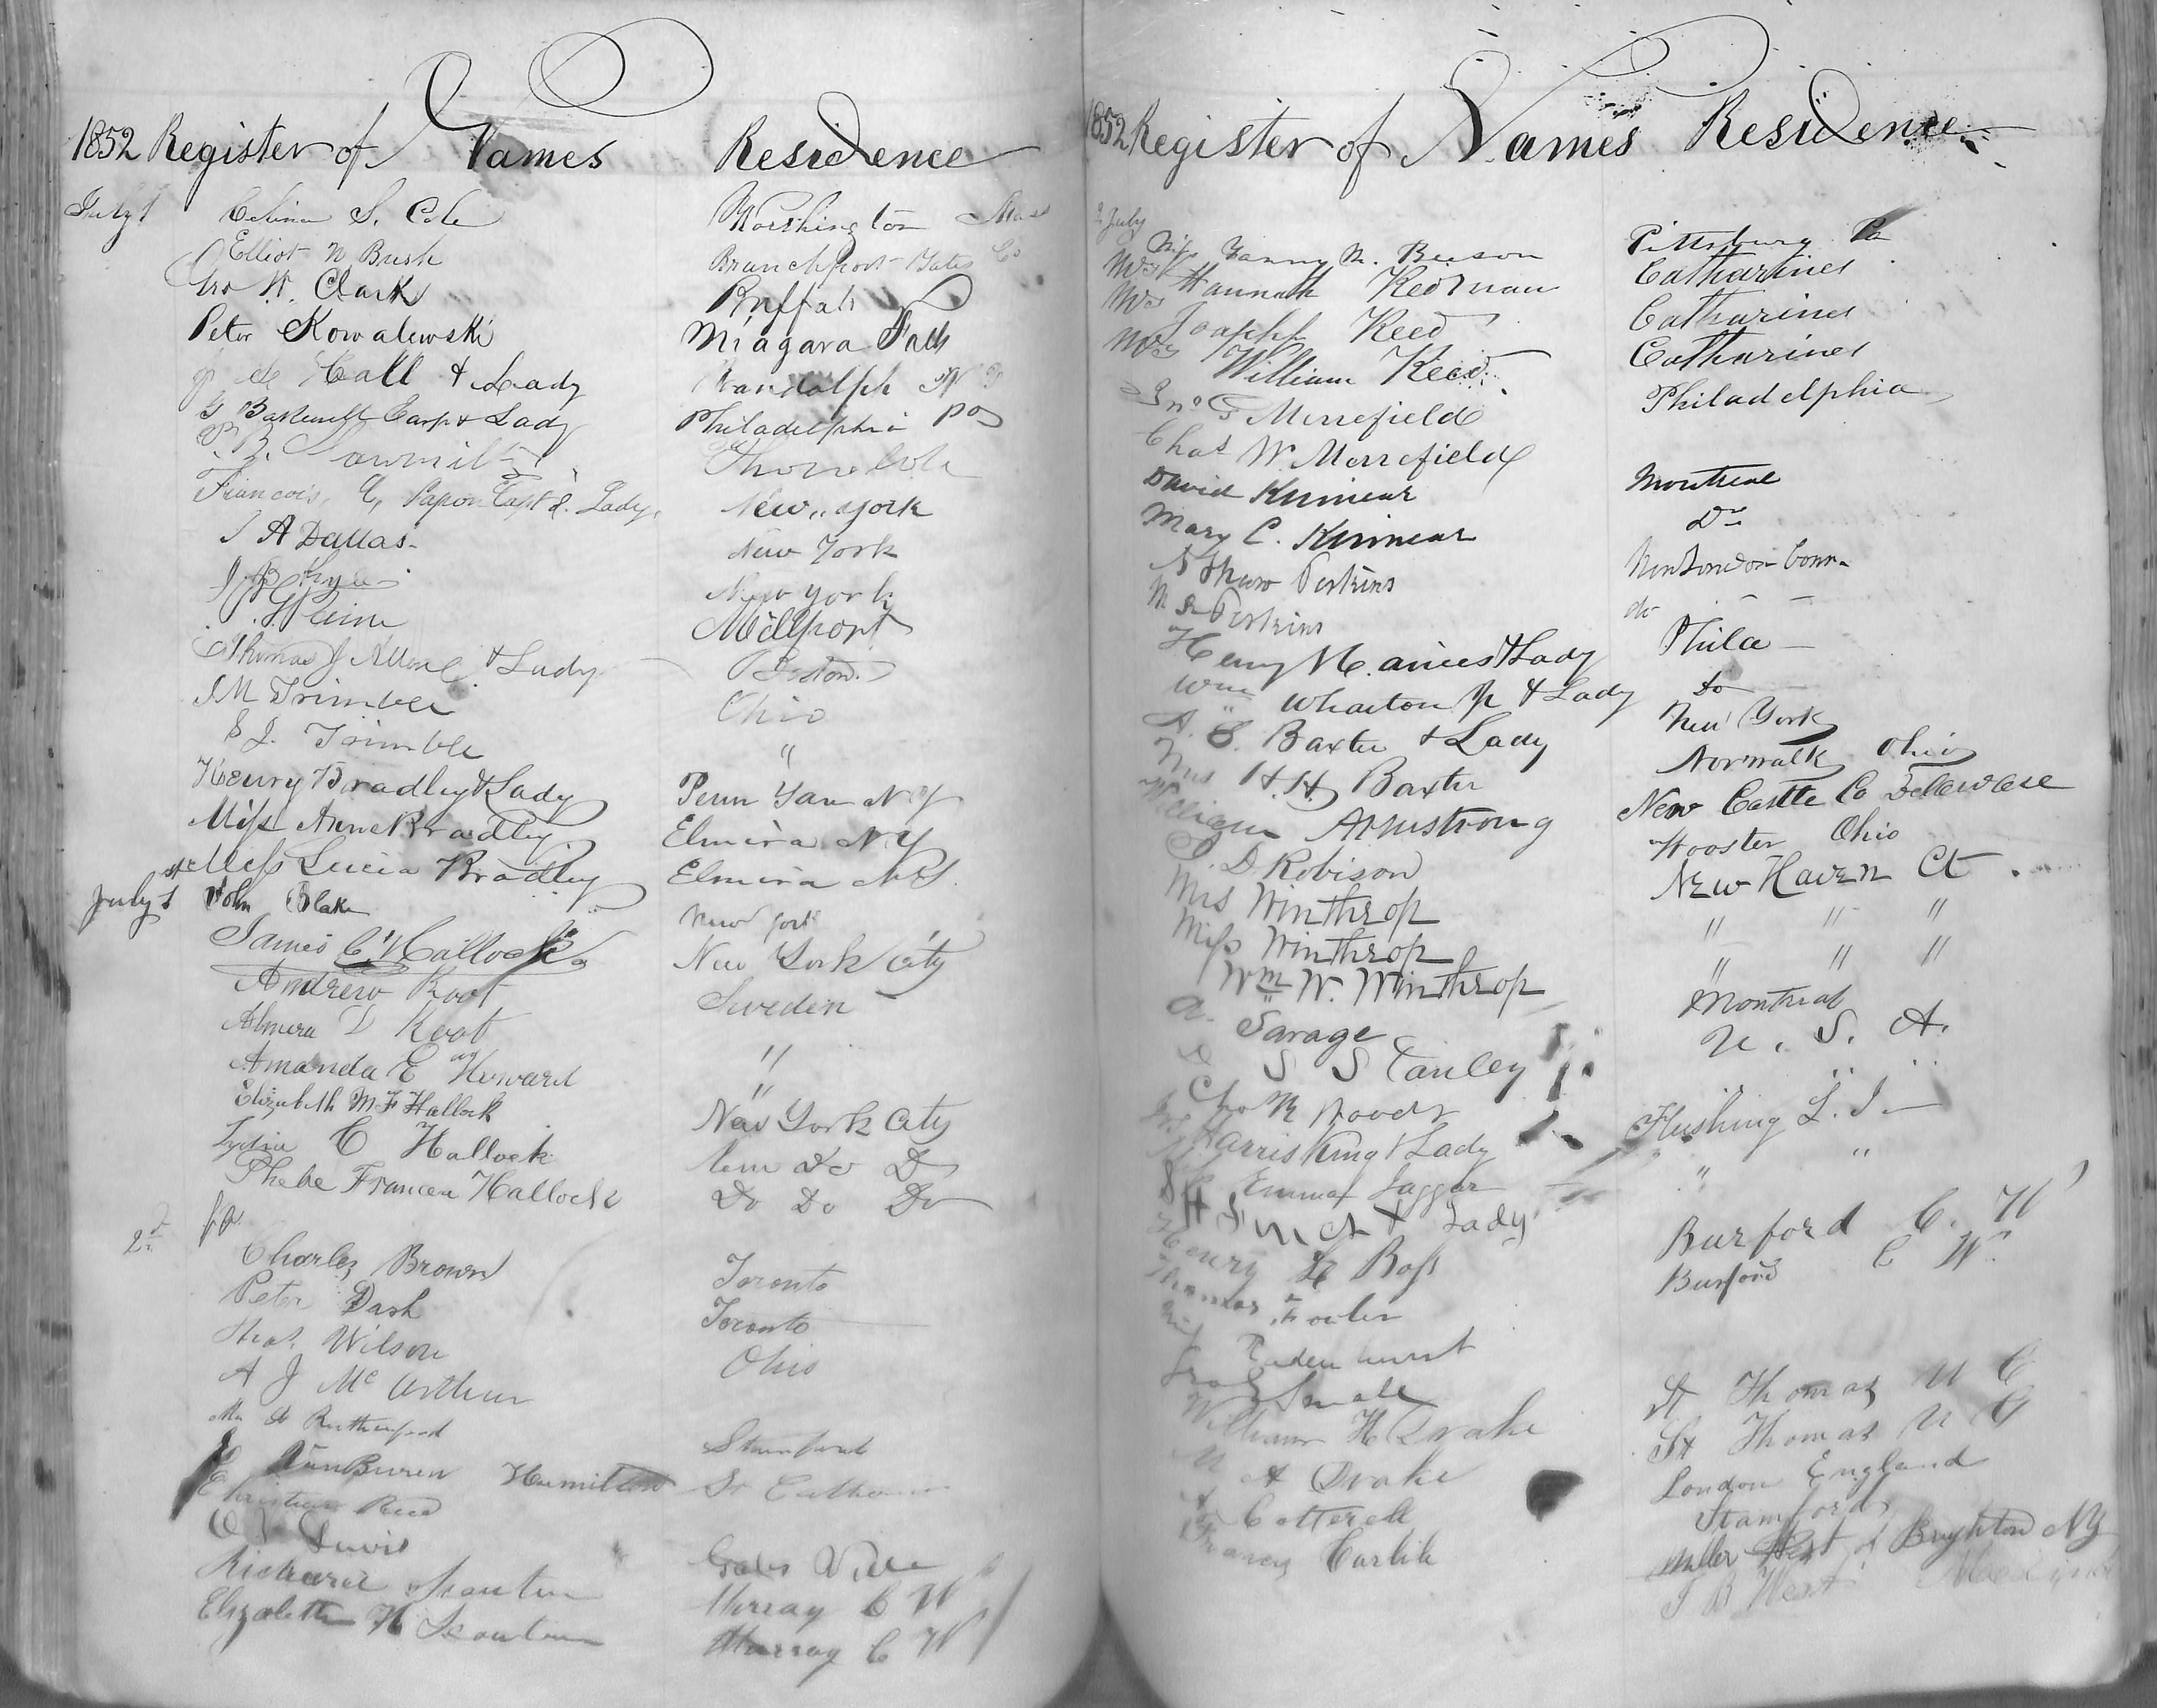 1852 Register of Names Residence
July 1 Celina S. Cole Worthington Mass
Elliot N Bush Branchport Yates Co
Geo W. Clark Buffalo
Peter Kowalewski Niagara Falls
Call & Lady Randolph N Y
Bakewell Earp & Lady Philadelphia Pa
Francois, Papon Capt & Lady, New York
A Dallas New York
New York
Millport
Thomas J Allen & Lady Boston
J M Trimble Ohio
S J. Trimble "
Henry Bradley & Lady Penn Yan N Y
Miss Anne Bradley Elmira N Y
Miss Lucia Bradley Elmira N Y.
July 1st John Blake New York
James C. Hallock New York City
Andrew Root Sweden
Almera D Root "
Amanda E Howard "
Elizabeth M F Hallock New York City
Lydia C Hallock New Do Do
Phebe Frances Hallock Do Do Do
2d
Charles Brown Toronto
Peter Dash Toronto
Thos. Wilson Ohio
A J McArthur
Rutherford Stamford
VanBuren Hamilton St Catharines
Christian Reed
Lewis Gales Ville
Richard Scouten Murray C W
Elizabeth H Scouten Murray C W
1852 Register of Names Residence
2 July
Miss Fanny M. Beeson Pittsburg Pa
Mrs Hannah Redman Catharines
Mrs Joseph Reed Catharines
Mrs William Reed Catharines
Jno G Merrefield Philadelphia
Chas W. Merrefield
David Kinnear Montreal
Mary C. Kinnear Do
N Shaw Perkins New London Conn.
M S Perkins do
Henry M. & Lady Phila
Wm Wharton Jr & Lady do
A. S. Baxter & Lady New York
Mrs H. H. Baxter Norwalk Ohio
William Armstrong New Castle Co Delaware
J. D Robison Wooster Ohio
Mrs Winthrop New Haven Ct.
Miss Winthrop " " "
Wm W. Winthrop " " "
A. Savage Montreal
D S Stanley U. S. A.
Chas R Woods " "
Harris King & Lady Flushing L. I.
Miss Emma Jaggar " "
& Lady
Henry Ross Burford C. W
Thomas Fowler Burford C W.
Smale
William H Drake St Thomas U C
M A Drake St Thomas U C
Cotterell London England
Francis Carlile Stamford
Miller West of Brighton NY
J B West